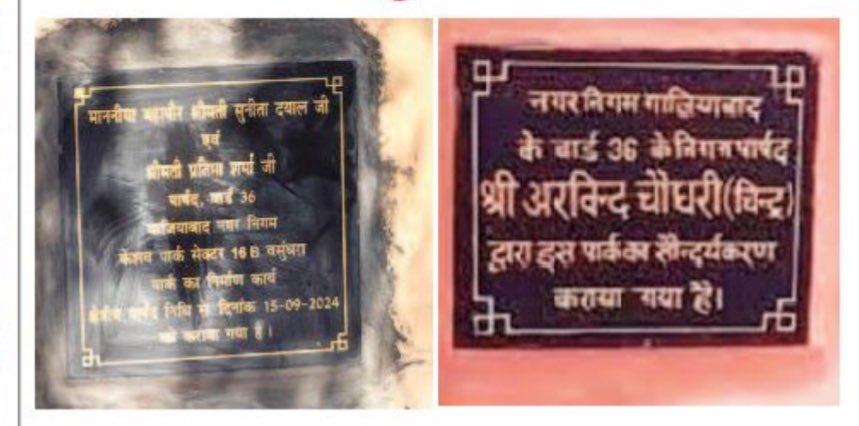 माननीया महापौर श्रीमती सुनीता दयाल जी
एवं
श्रीमती प्रतिभा शर्मा जी
पार्षद, वार्ड 36
गाजियाबाद नगर निगम
केशव पार्क सेक्टर 16 B वसुंधरा
पार्क का निर्माण कार्य
क्षेत्रीय पार्षद निधि से दिनांक 15-09-2024
को कराया गया है।
नगर निगम गाजियाबाद
के वार्ड 36 के निगम पार्षद
श्री अरविन्द चौधरी (चिन्टू)
द्वारा इस पार्क का सौन्दर्यकरण
कराया गया है।